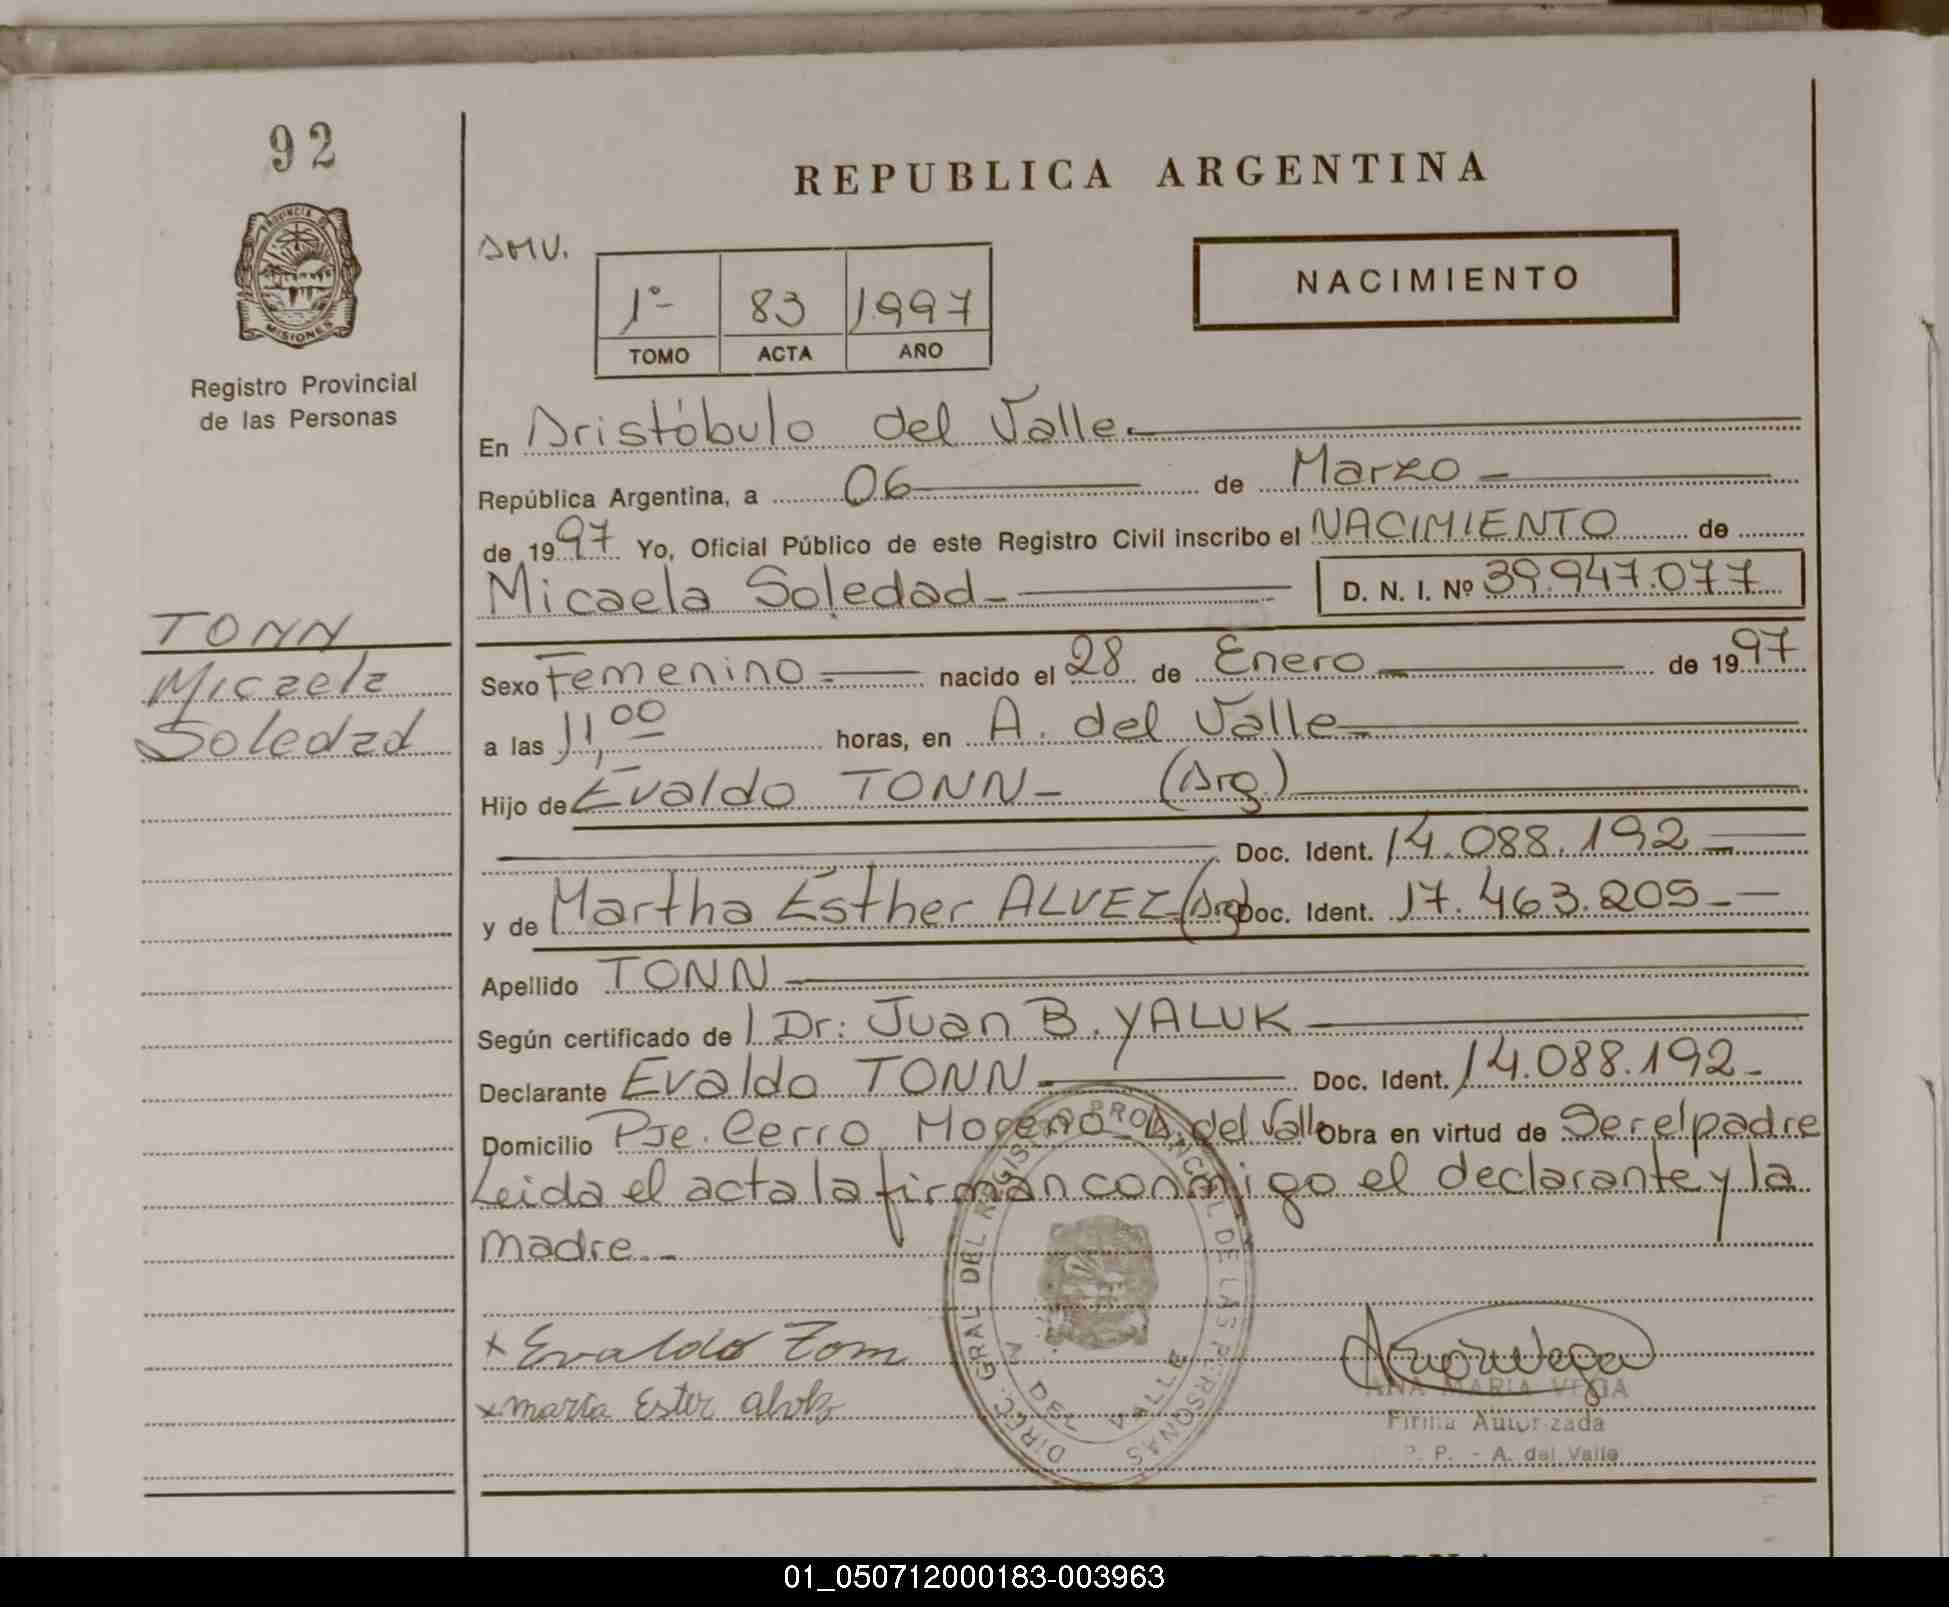 92
REPUBLICA ARGENTINA
PROVINCIA DE
MISIONES
Registro Provincial
de las Personas
AMV.
1º 83 1997
TOMO ACTA AÑO
NACIMIENTO
En Aristóbulo del Valle.
República Argentina, a 06 de Marzo
de 1997 Yo, Oficial Público de este Registro Civil inscribo el NACIMIENTO de
Micaela Soledad D. N. I. Nº 39.947.077
TONN
Micaela
Soledad
Sexo Femenino nacido el 28 de Enero de 1997
a las 11,00 horas, en A. del Valle
Hijo de Evaldo TONN (Arg)
Doc. Ident. 14.088.192
y de Martha Esther ALVEZ (Arg) Doc. Ident. 17.463.205
Apellido TONN
Según certificado de Dr: Juan B. YALUK
Declarante Evaldo TONN Doc. Ident. 14.088.192
Domicilio Pje. Cerro Moreno A. del Valle Obra en virtud de Ser el padre
Leida el acta la firman conmigo el declarante y la
madre
DIREC. GRAL DEL REGIST PROVINCIAL DE LAS PERSONAS
DEL VALLE
x Evaldo Tonn
x maria Ester
ANA MARIA VEGA
Firma Autorizada
A. del Valle
01_050712000183-003963